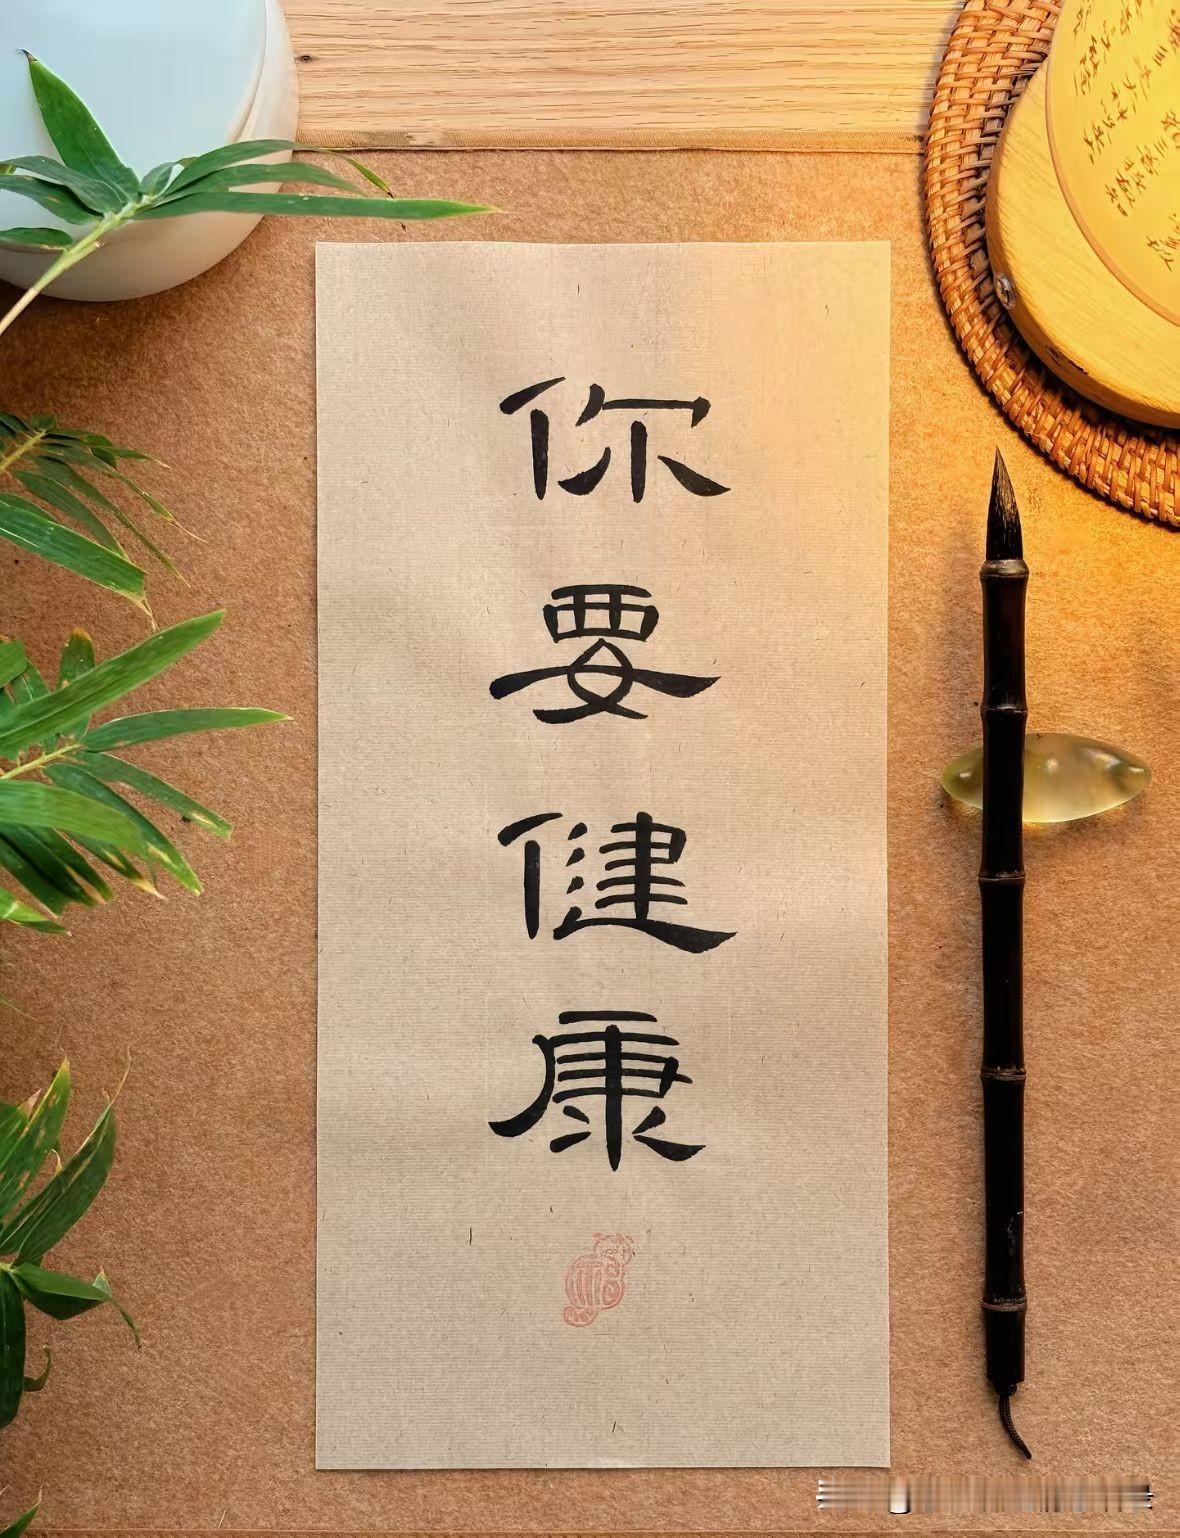 你要健康